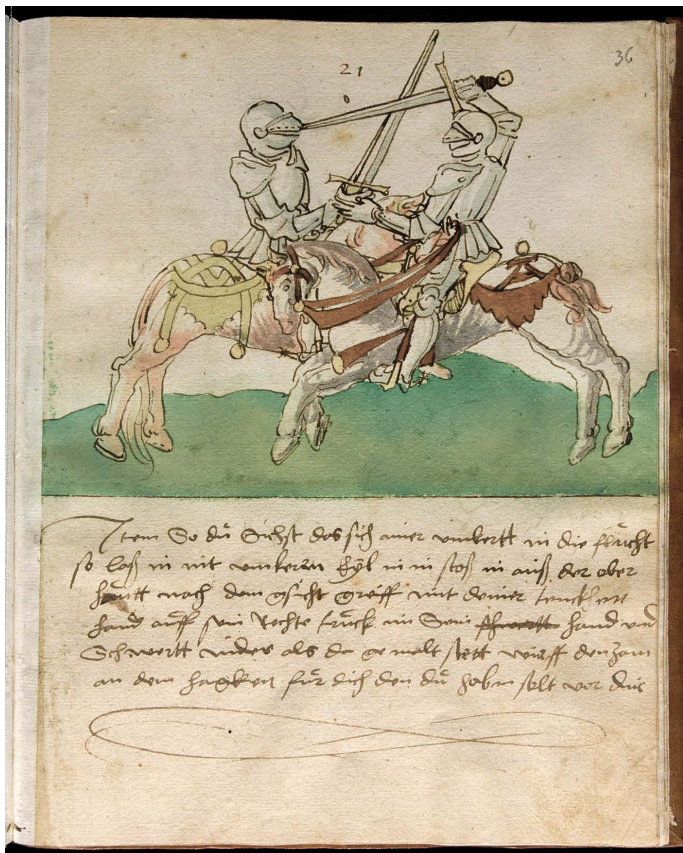 36
21
Item So dŭ Sichst das sich ainer umkertt in die flŭcht
so laß in nit umkeren Eyl in in stoß in auß der ober
hŭtt nach dem gsicht greiff mit deiner lenncken
hand aŭff sein Rechte trŭck im Sein schwertt hand und
Schwertt nider als da gemalt stett wirff den Zam
an dem hagken für dich den dŭ habm solt vor dir